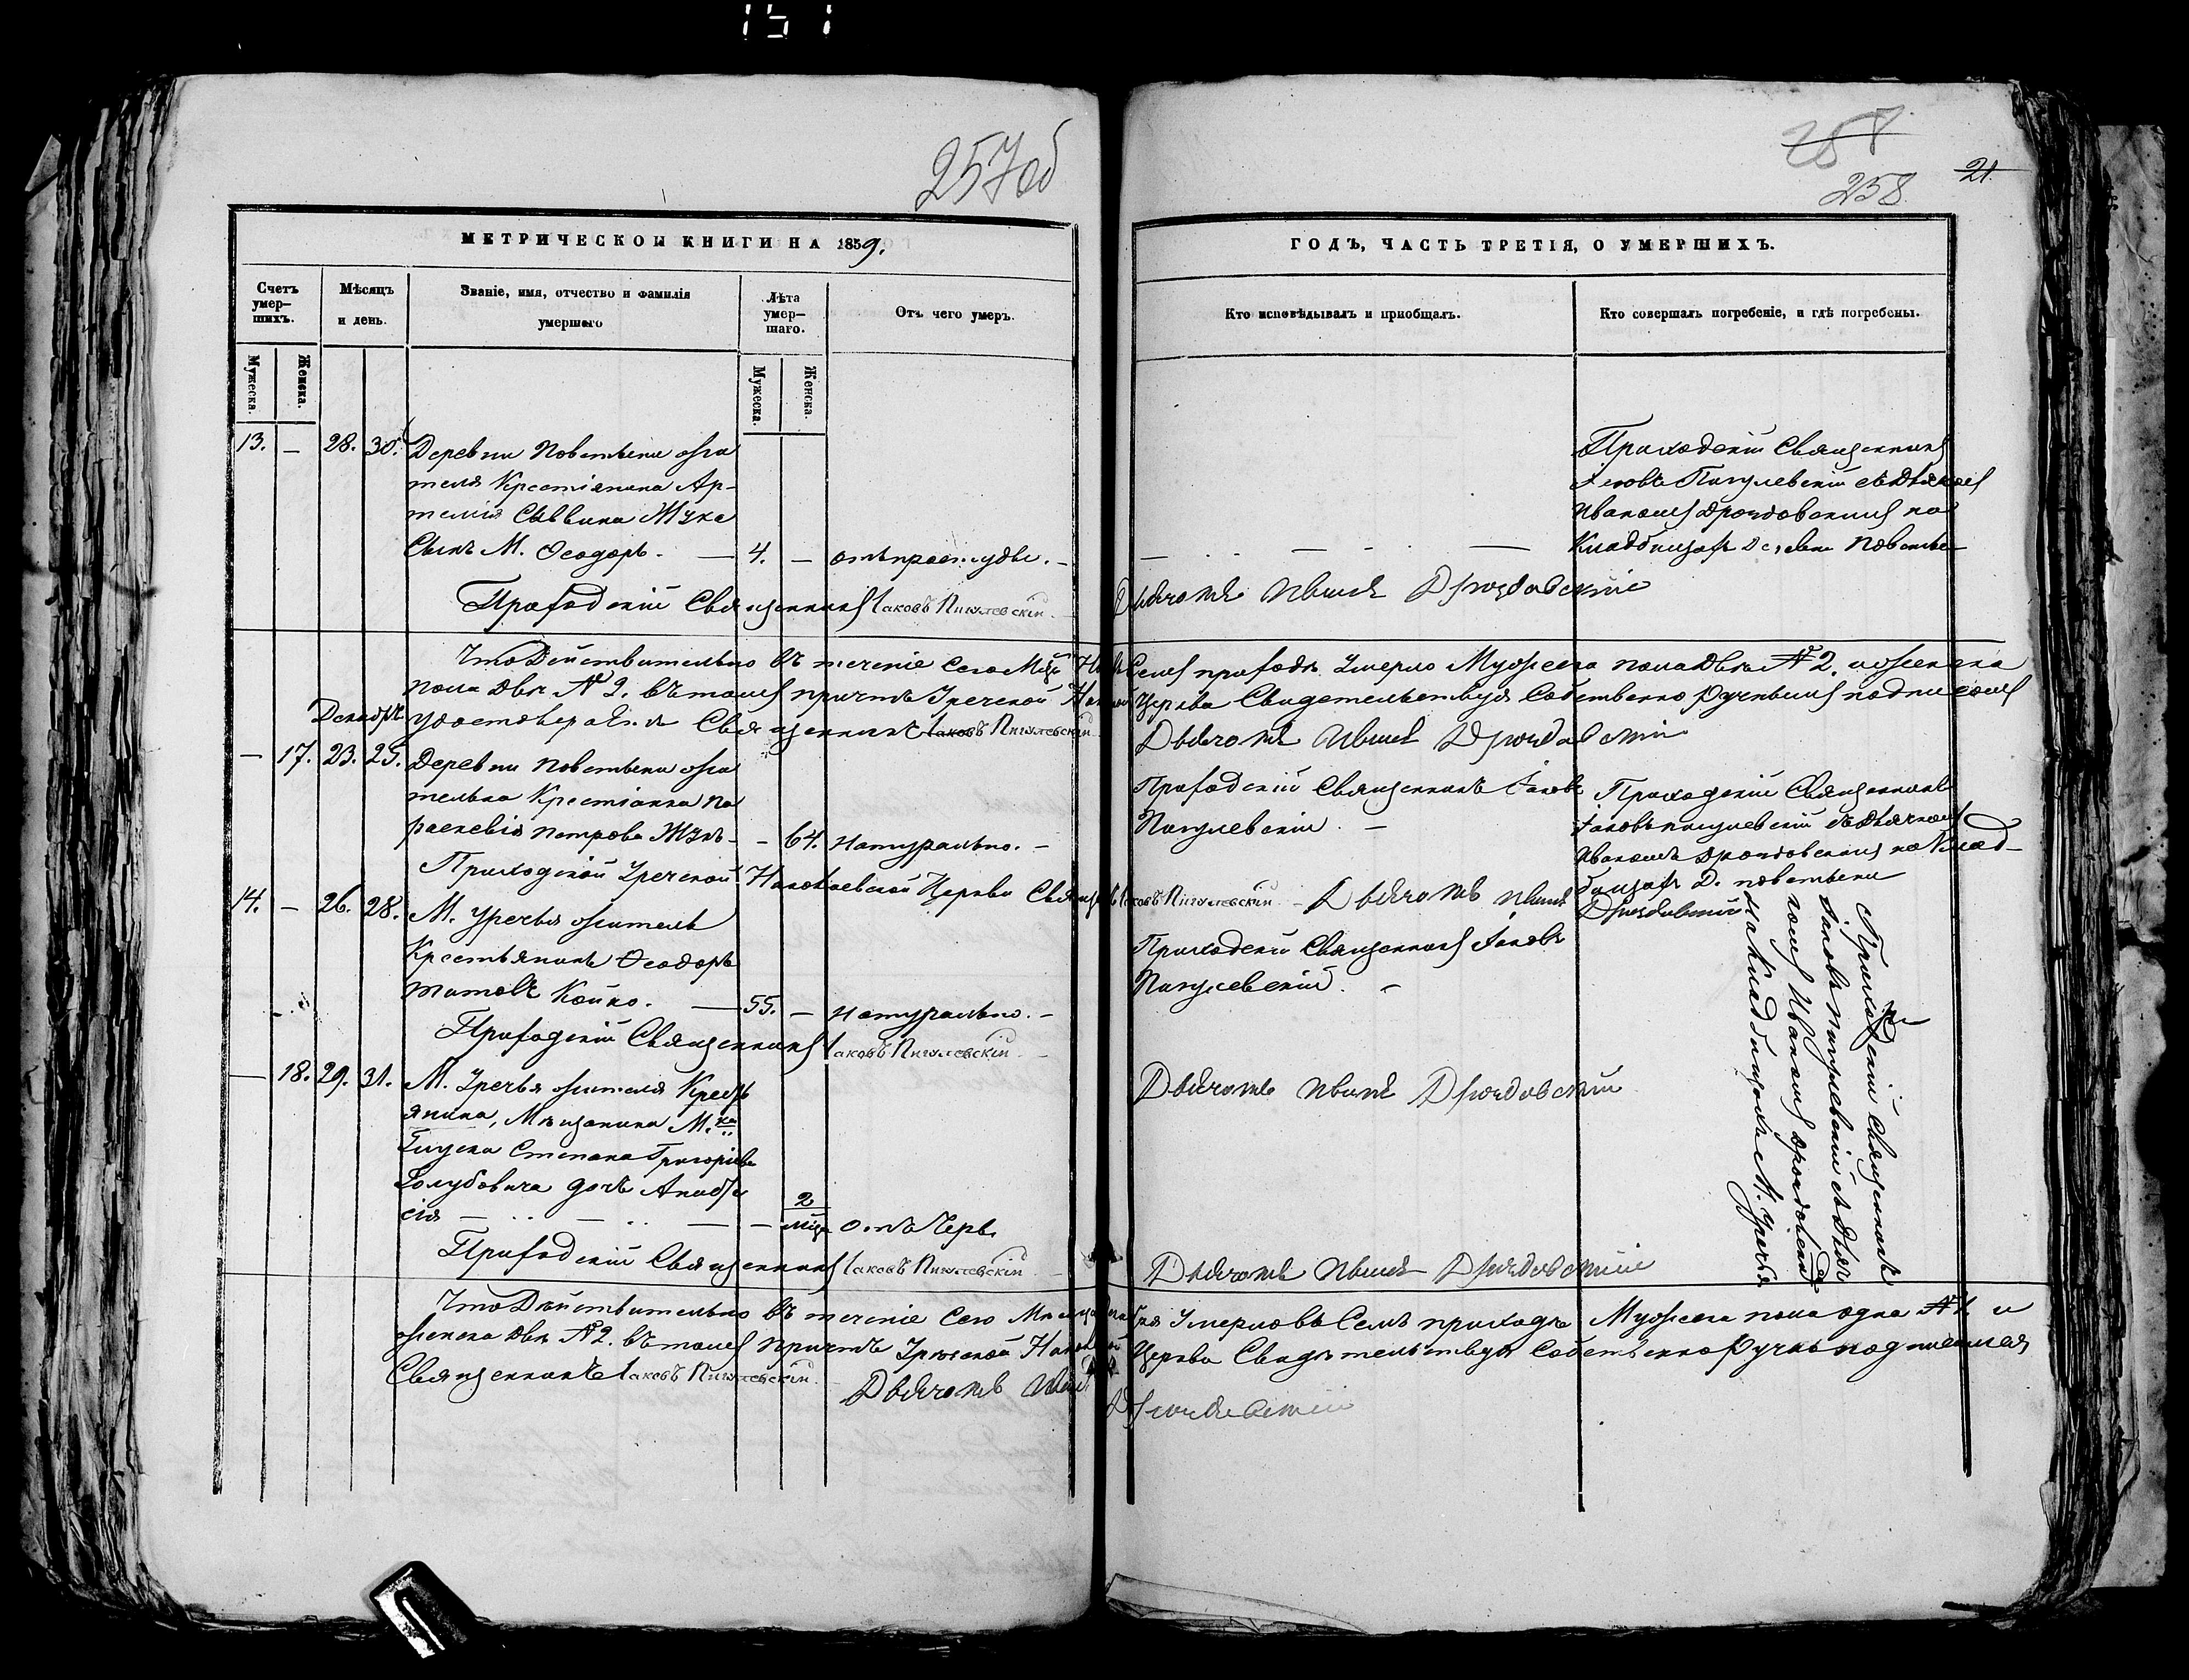 257 об
258
258.
21.
МЕТРИЧЕСКОЙ КНИГИ НА 1859.
ГОДЪ, ЧАСТЬ ТРЕТІЯ, О УМЕРШИХЪ.
Счетъ умер-шихъ.
Мѣсяцъ и день.
Званіе, имя, отчество и фамилія умершаго
Лѣта умер-шаго.
Отъ чего умеръ.
Кто исповѣдывалъ и пріобщалъ.
Кто совершалъ погребеніе, и гдѣ погребены.
Мужеска.
Женска.
Мужеска.
Женска.
13. — 28. 30. Деревни Повстыни жи
теля Крестіянина Ар-
темія Саввина Жука
Сынъ М. Ѳеодоръ. — 4. — отъ простуды. —
Приходскій Священникъ
Іаковъ Пигулевскій съ Дьячкомъ
Иваномъ Дроздовскимъ на
Кладбищахъ Деревни Повстыни
Приходскій Священникъ Іаковъ Пигулевскій
Дьячокъ Иванъ Дроздовскій
Что Действительно въ теченіе сего Мца Ноя
Семъ приходѣ Умерло Мужеска пола два № 2. и женска
пола два № 2. въ томъ причтъ Уречской Николаевской
Церкви Свидетельствуя Собственно ручнымъ подписомъ
удостоверяетъ Священникъ Іаковъ Пигулевскій
Дьячокъ Иванъ Дроздовскій
Декабрь
— 17. 23. 25. Деревни Повстыни жи
телька Крестіанка Па
раскевія Петрова Жукъ — — 64. Натурально. —
Приходскій Священникъ Іаковъ
Пигулевскій. —
Приходскій Священникъ
Іаковъ Пигулевскій съ Дьячкомъ
Иваномъ Дроздовскимъ на Клад-
бищахъ Д. Повстыни
Приходской Уречской Николаевской Церкви Священникъ Іаковъ Пигулевскій — Дьячокъ Иванъ Дроздовскій
14. — 26. 28. М. Уречья житель
Крестьянинъ Ѳеодоръ
Титовъ Койко. — 55. — Натурально. —
Приходскій Священникъ Іаковъ
Пигулевскій. —
Приходскій Священникъ Іаковъ Пигулевскій
Дьячокъ Иванъ Дроздовскій
Приходскій Священникъ
Іаковъ Пигулевскій съ Дьяч
комъ Иваномъ Дроздовским
на Кладбищахъ М. Уречья
— 18. 29. 31. М. Уречья жителя Крестъ
янина, Мѣщанина М.ка
Глуска Степана Григоріева
Голубовича дочь Анаста
сія — — 2 Мца отъ Черв.
Приходскій Священникъ Іаковъ Пигулевскій
Дьячокъ Иванъ Дроздовскій
Что Дѣйствительно въ теченіе Сего Месяца Декабря Умерло въ Семъ приходѣ Мужеска пола одна № 1. и
женска два № 2. въ томъ Причтъ Уречской Николаевской Церкви Свидѣтельствуя Собственно Ручнъ подписомъ
Священникъ Іаковъ Пигулевскій
Дьячокъ Иванъ Дроздовскій